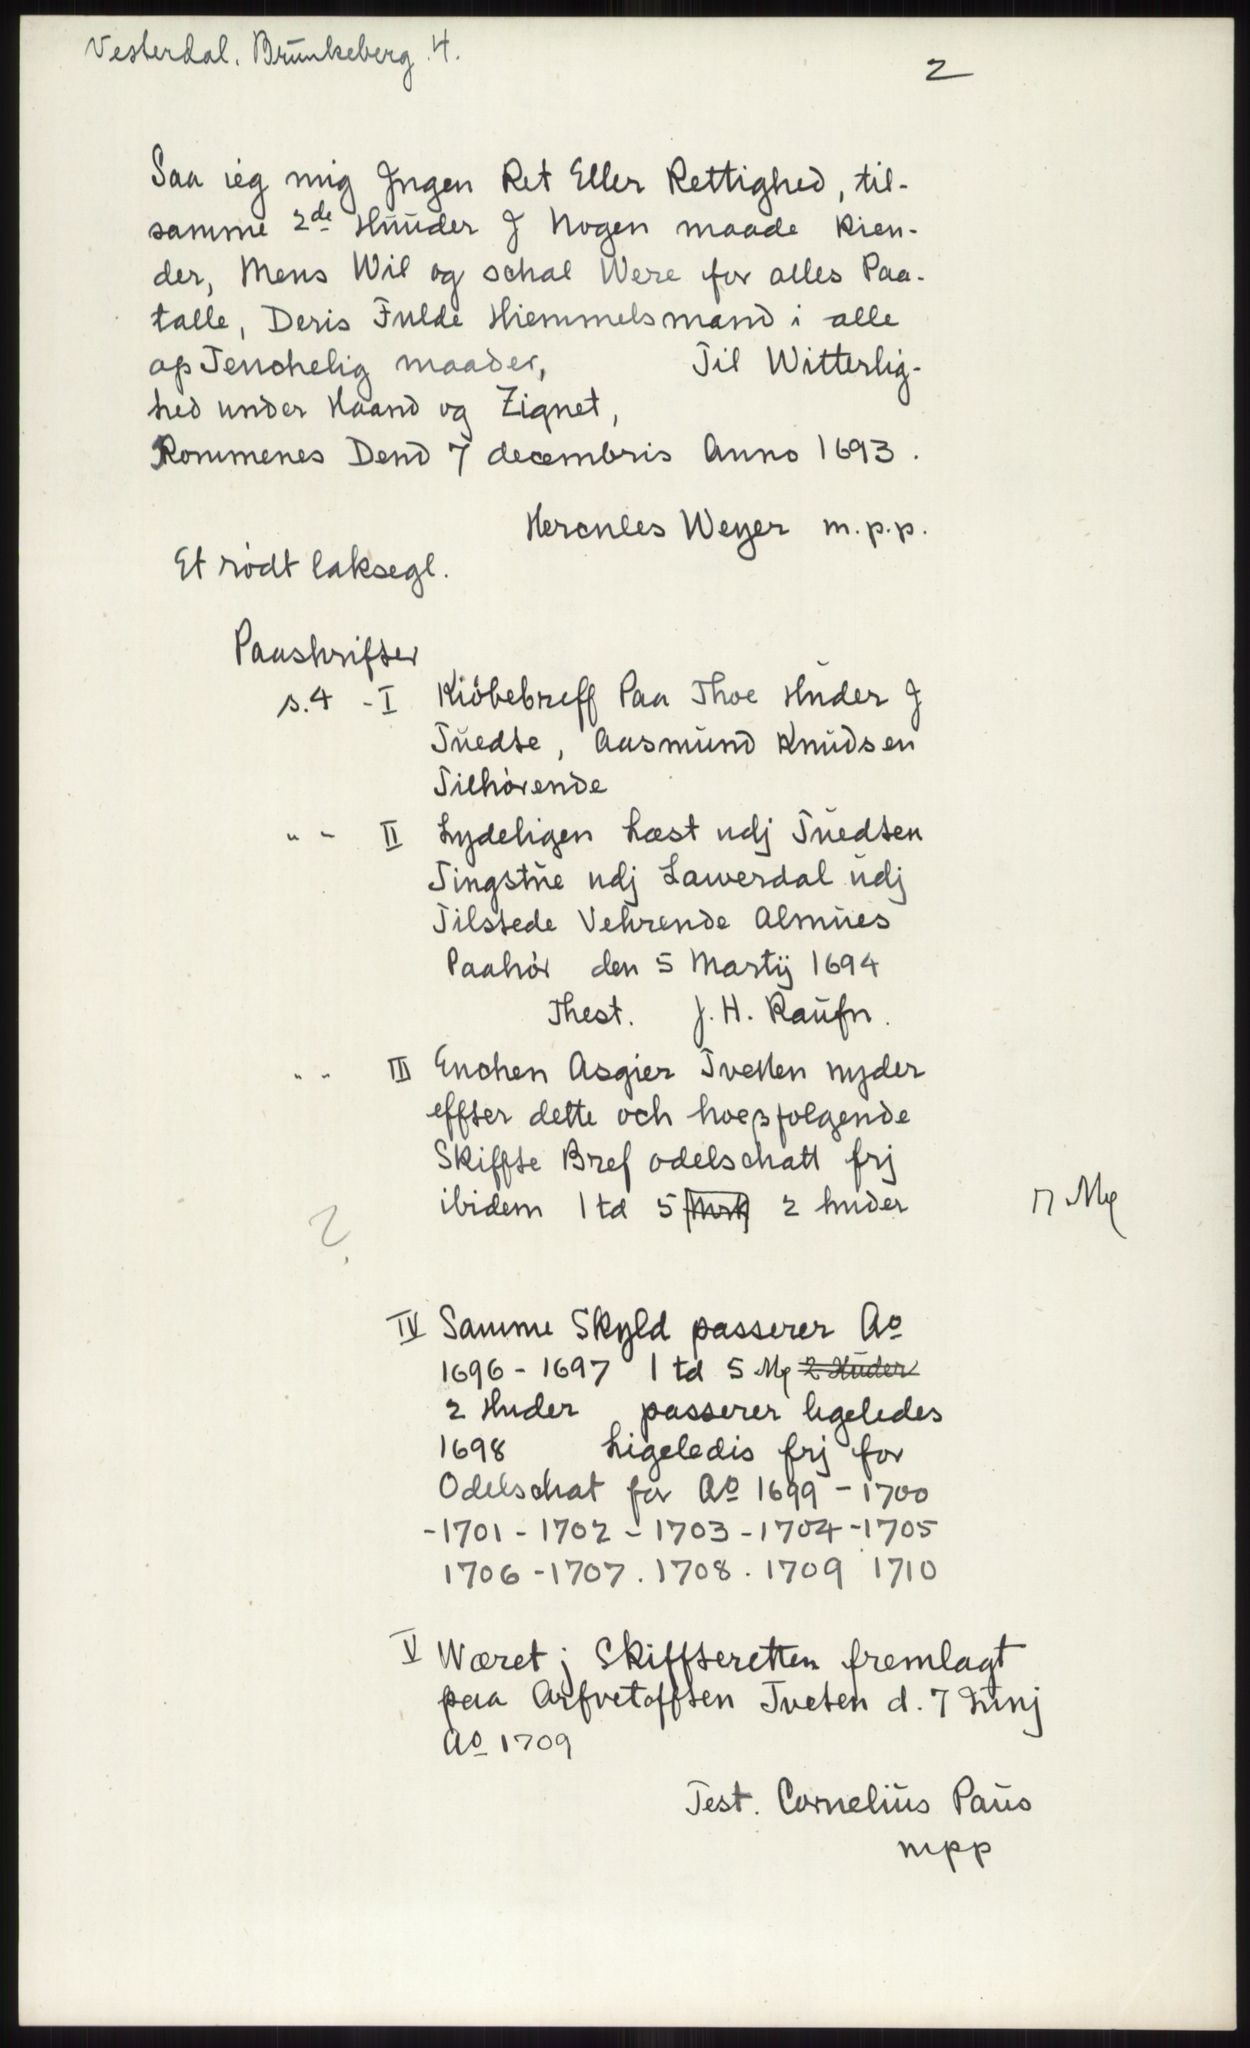 Vesterdal. Brunkeberg. 4.
2
Saa ieg mig Jngen Ret Eller Rettighed, til-
samme 2de Huuder J Nogen maade kien-
der, Mens Wil og schal Were for alles Paa-
talle, Deris Fulde Hiemmelsmand i alle
optenchelig maader, Til Witterlig-
hed under Haand og Zignet,
Rommenes Dend 7 decembris Anno 1693.
Hercules Weyer m.p.p.
Et rødt laksegl.
Paaskrifter
s.4 - I Kiøbebreff Paa Thoe Huder J
Tuedte, Aasmund Knudsen
Tilhørende
" - II Lydeligen Læst udj Tuedten
Tingstue udj Lawerdal udj
Tilstede Vehrende Almues
Paahør den 5 Martij 1694
Thest. J. H. Raufn.
" " III Enchen Asgier Tvetten nyder
effter dette och hoesfølgende
Skiffte Bref odelschatt frj
ibidem 1 td 5 2 huder
? IV Samme Skyld passerer Ao
1696 - 1697 1 td 5 Mrk 2 Huder
2 Huder passerer ligeledes
1698 Ligeledis frj for
Odelschat for Ao 1699 - 1700
-1701 - 1702 - 1703 - 1704 - 1705
1706 - 1707. 1708. 1709 1710
V Wæret j Skiffteretten fremlagt
paa Arfvetofften Tveten d. 7 Junj
Ao 1709
Test. Cornelius Paus
mpp